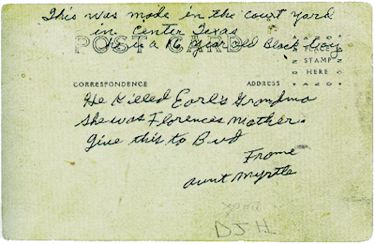 This was made in the court yard
in Center Texas
POST CARD
he is a 16 year old Black boy
PLACE
STAMP
HERE
CORRESPONDENCE
ADDRESS
He Killed Earl's Grandma
She was Florence's mother.
Give this to Bud
From
Aunt Myrtle
DJH